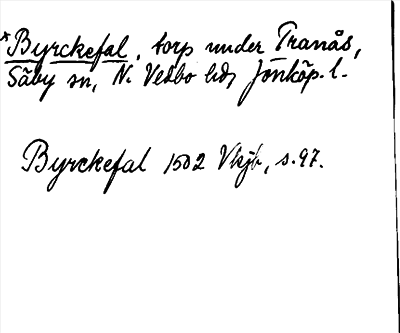 *Byrckefal, torp under Tranås,
Säby sn, N. Vedbo hd, Jönköp. l.
Byrckefal 1502 Vkjb, s. 97.